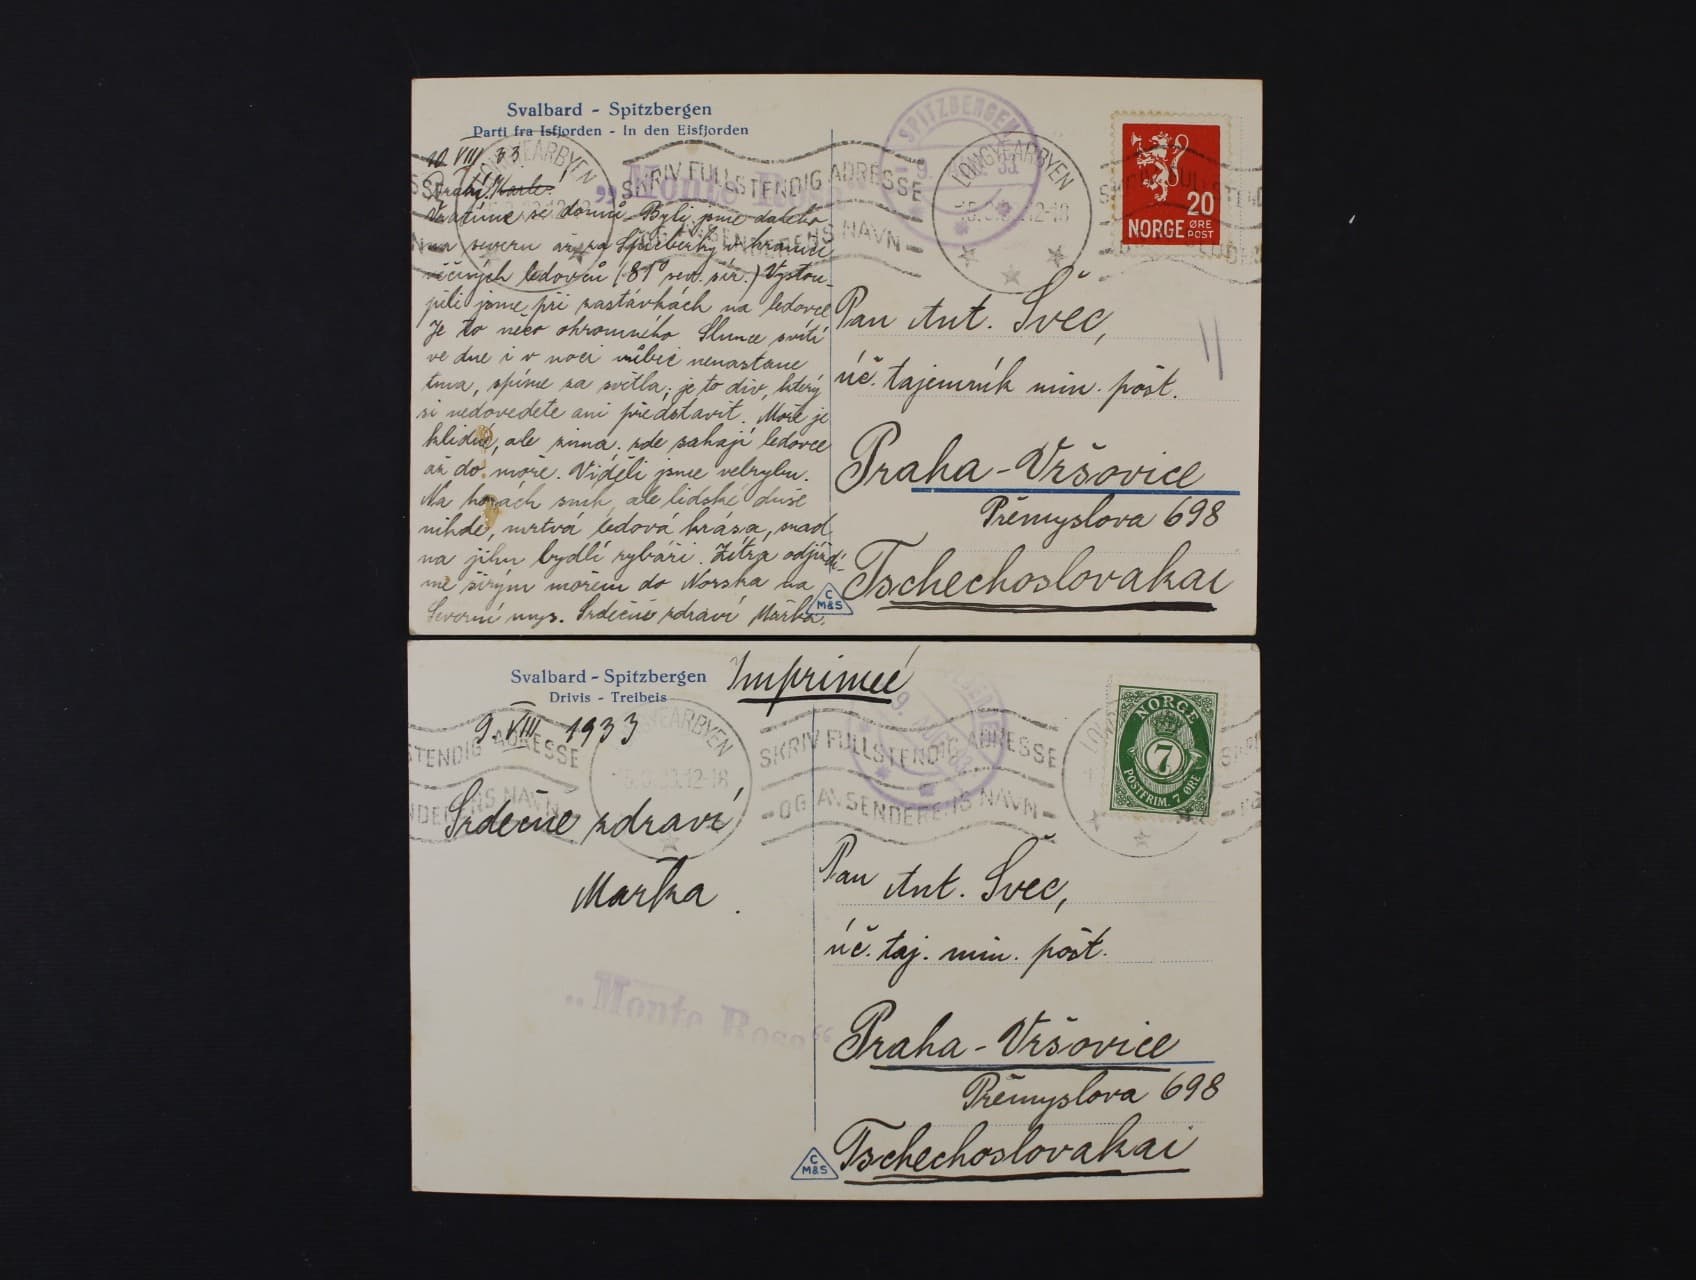 Svalbard - Spitzbergen
Parti fra Isfjorden - In den Eisfjorden
10. VIII 33.
Drahý Karle!
Vracíme se domů. Byli jsme daleko
na severu až za Špicberky v hranici
věčných ledovců (81° sev. šíř.) Vystou-
pili jsme při zastávkách na ledovce
Je to něco ohromného. Slunce svítí
ve dne i v noci vůbec nenastane
tma, spíme za světla; je to div, který
si nedovedete ani představit. Moře je
klidné, ale zima. zde sahají ledovce
až do moře. Viděli jsme velrybu.
Na horách sníh, ale lidské duše
nikde, mrtvá ledová krása, snad
na jihu bydlí rybáři. Zítra odjíždí-
me širým mořem do Norska na
Severní mys. Srdečně zdraví Mařka.
„Monte Rosa
SPITZBERGEN
9. 33
LONGYEARBYEN
12-18
LONGYEARBYEN
12-18
SKRIV FULLSTENDIG ADRESSE
OG AVSENDERENS NAVN
20
NORGE ØRE POST
Pan Ant. Švec,
úč. tajemník min. pošt.
Praha - Vršovice
Přemyslova 698
Tschechoslovakai
C
M&S
Svalbard - Spitzbergen
Drivis - Treibeis
Imprimeé
9. VIII 1933
Srdečně zdraví
Mařka.
„Monte Rosa“
STENDIG ADRESSE
NDERENS NAVN
YEARBYEN
33.12-18
SKRIV FULLSTENDIG ADRESSE
OG AVSENDERENS NAVN
9. AUG. 33
NORGE
7
POSTFRIM. 7 ØRE
Pan Ant. Švec,
úč. taj. min. pošt.
Praha - Vršovice
Přemyslova 698
Tschechoslovakai
C
M&S